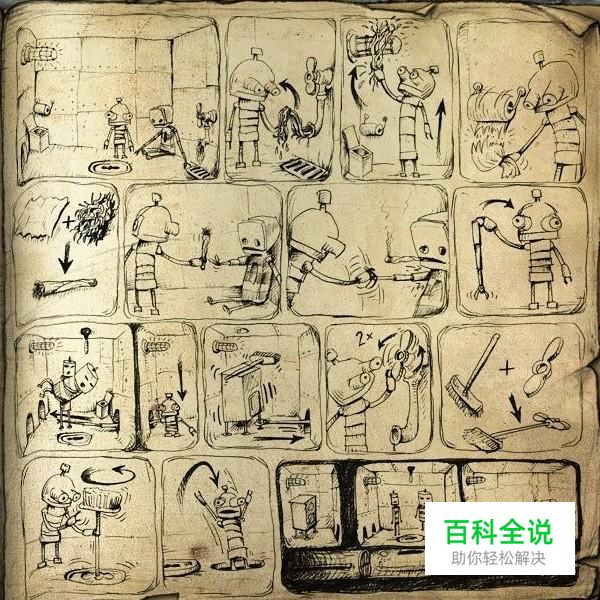 2×
百科全说
助你轻松解决